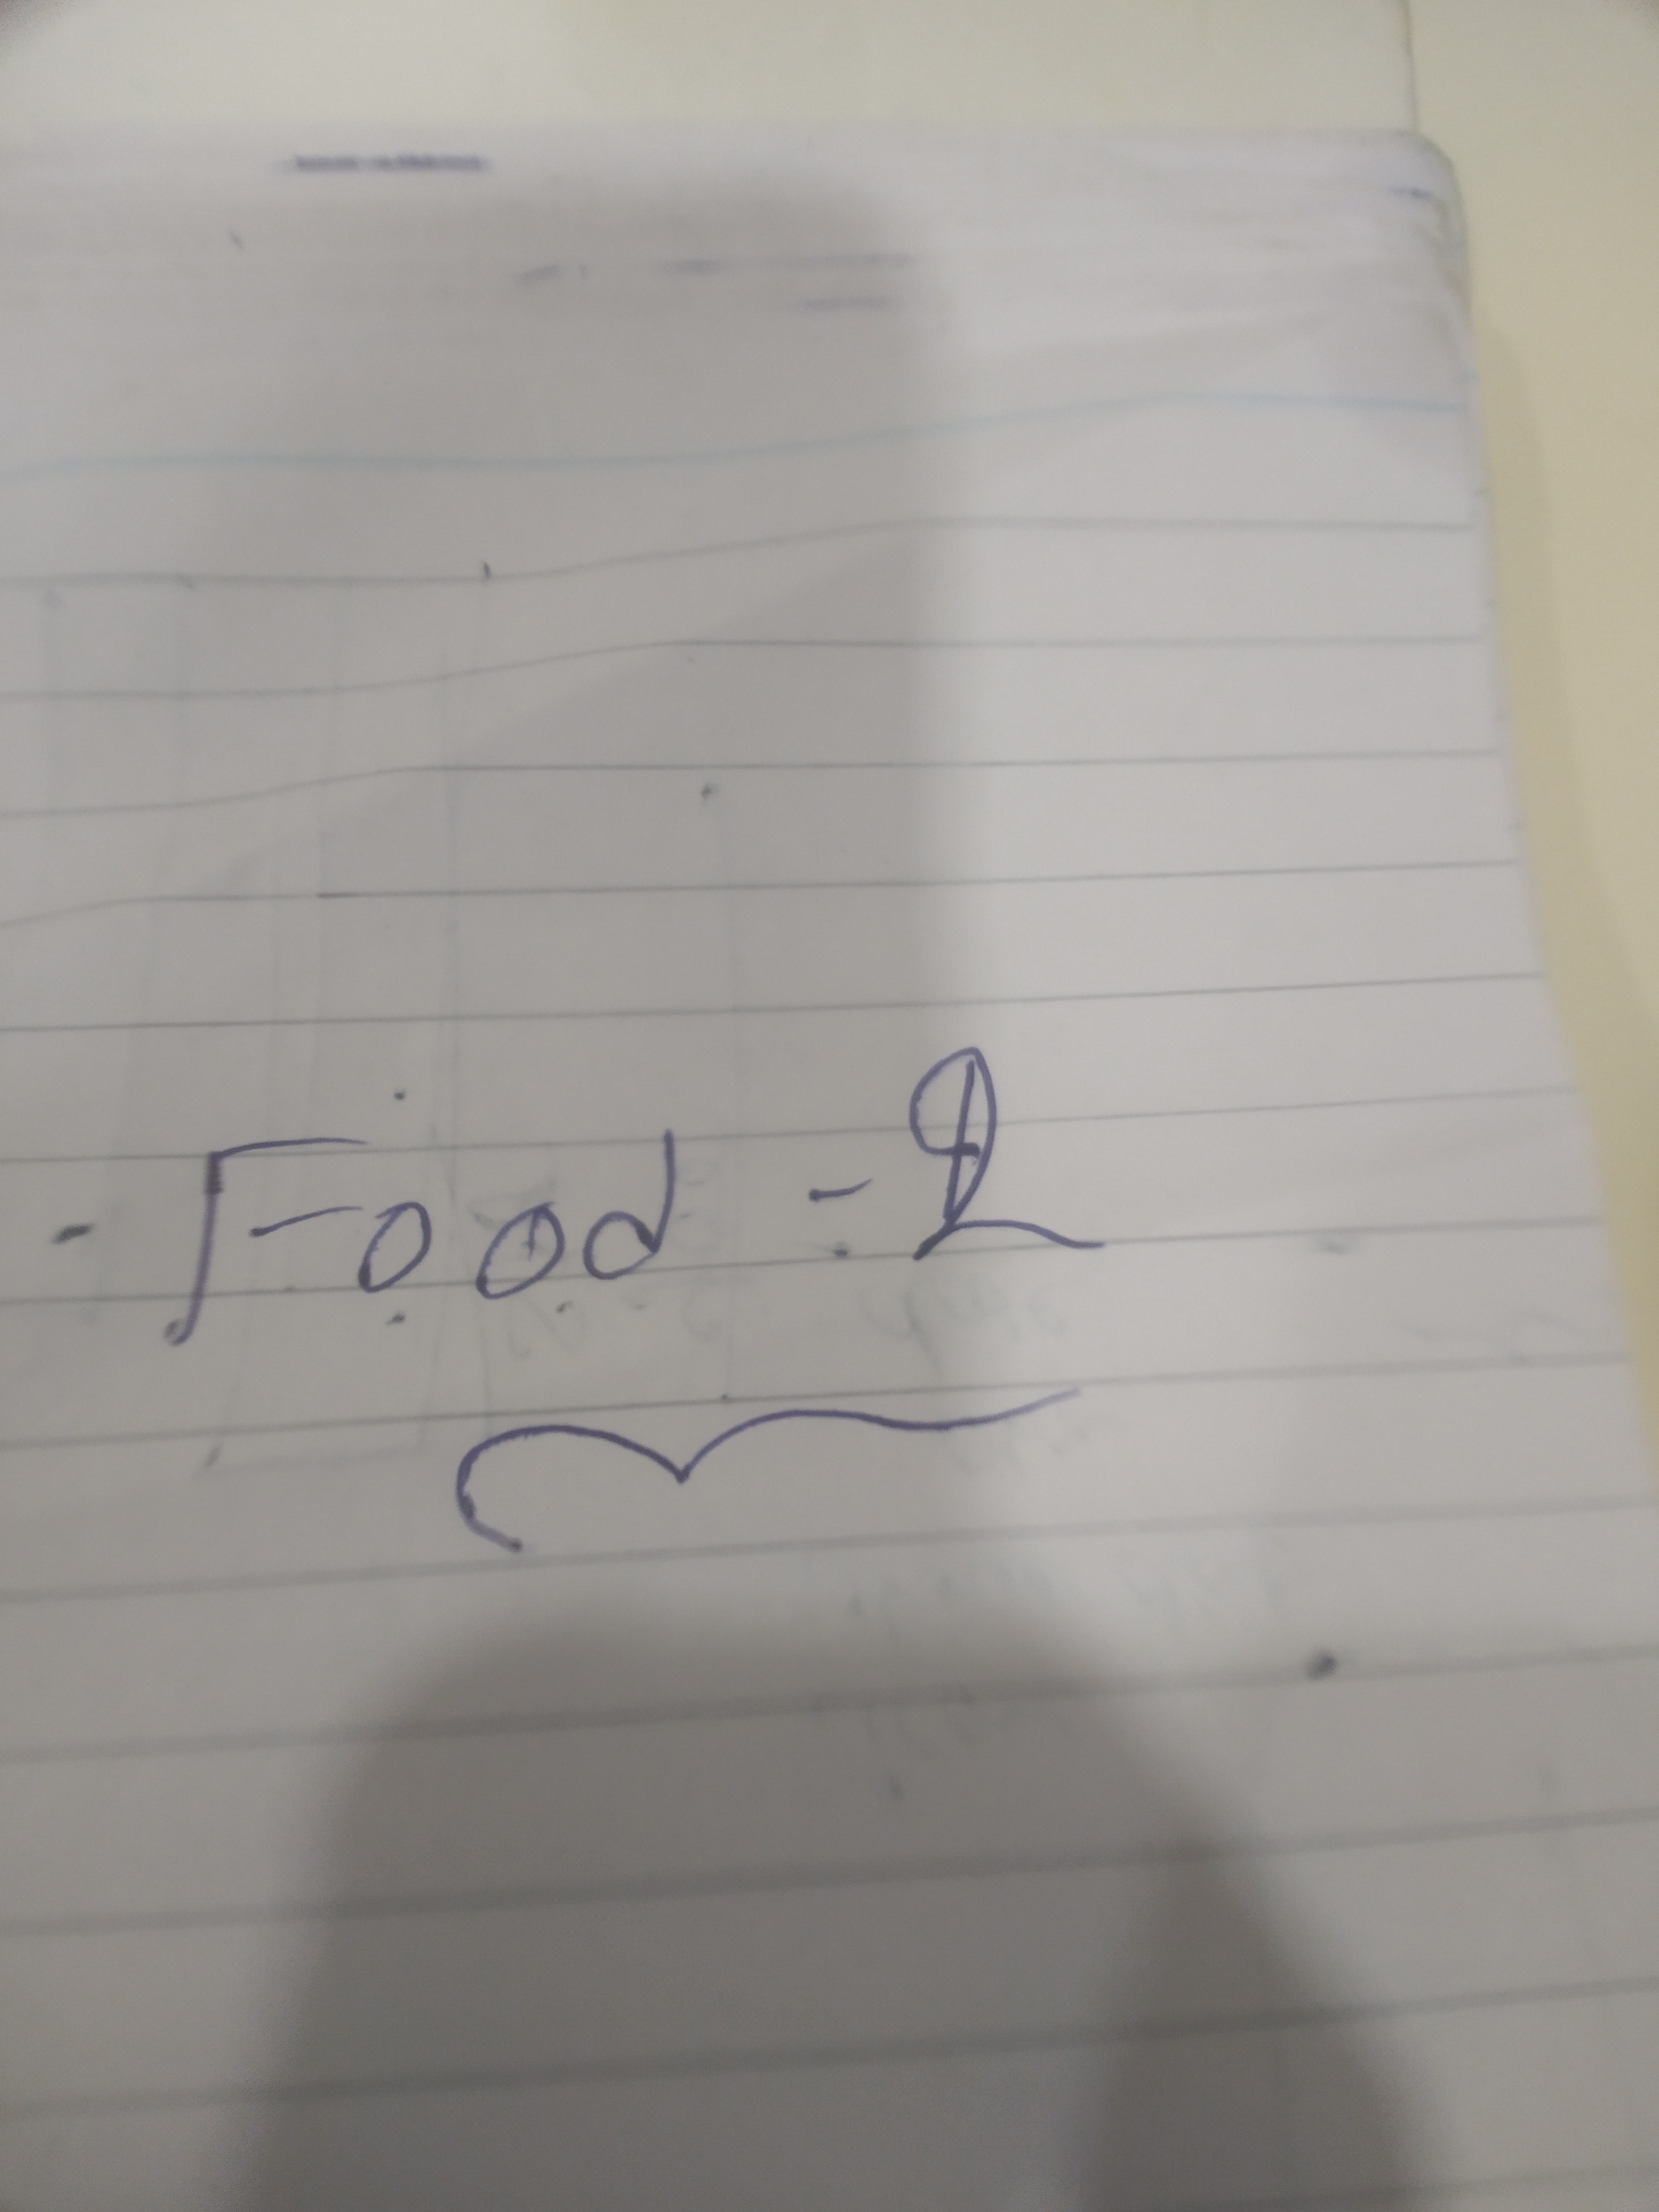 - Food - 2